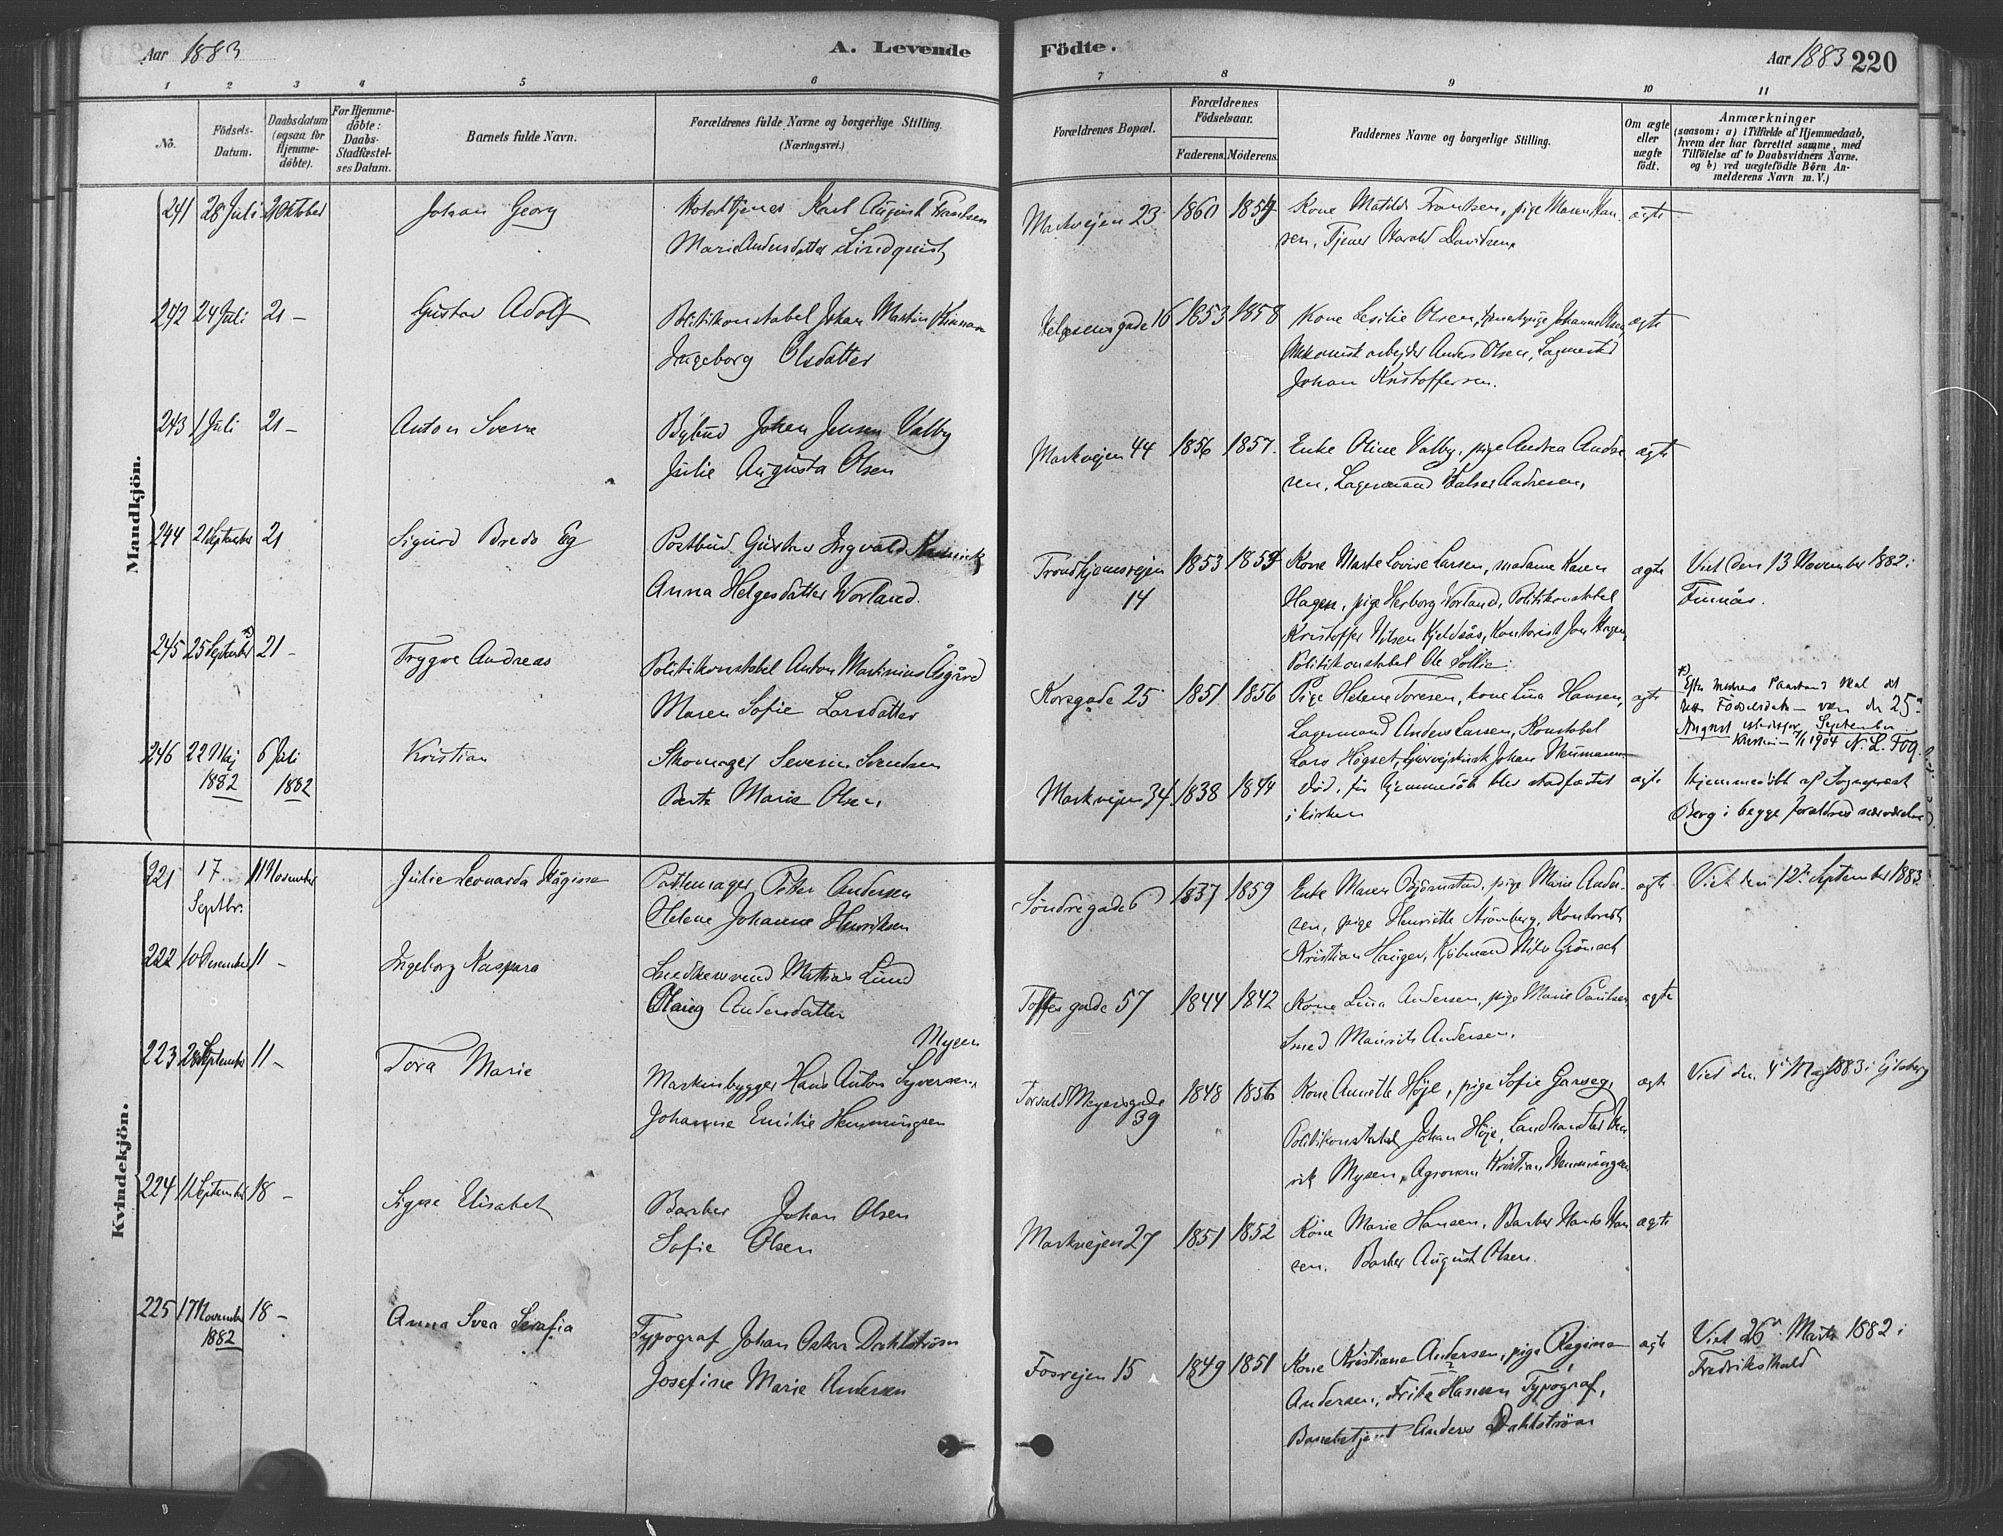 Aar 1883
A. Levende
Födte.
Aar 1883
220
1 2 3 4 5 6
7 8 9 10 11
No.
Födsels-
Datum.
Daabsdatum
(ogsaa for
Hjemme-
döbte).
For Hjemme-
döbte:
Daabs-
Stadfæstel-
ses Datum.
Barnets fulde Navn.
Forældrenes fulde Navne og borgerlige Stilling.
(Næringsvei.)
Forældrenes Bopæl.
Forældrenes
Födselsaar.
Faderens.
Möderens.
Faddernes Navne og borgerlige Stilling.
Om ægte
eller
uægte
födt.
Anmærkninger
(saasom: a) i Tilfælde af Hjemmedaab,
hvem der har forrettet samme, med
Tilföielse af to Daabsvidners Navne.
og b) ved uægtefödte Börn An-
melderens Navn m. V.)
Mandkjön.
241 28 Juli 21 Oktober Johan Georg
Karl August Frantsen
Marie Andersdatter Lindquist
Markvejen 23 1860
Kone Matilde Frantsen, pige Maren Han-
sen, Tjener Harald Davidsen,
ægte
242 24 Juli 21 – Gustav Adolf
Politikonstabel Johan Martin
Ingeborg Olsdatter
16 1853 1858
Kone Olsen, Johanne Olsen,
arbejder Anders Olsen,
Johan Kristoffersen.
ægte
243 1 Juli 21 – Anton Sverre
Bybud Johan Jensen Valby
Julie Augusta Olsen
Markvejen 44 1856 1857.
Enke Oline Valby, pige Andrea Andre-
sen, Lagermand Andresen,
ægte
244 21 September 21 Sigurd Bredo Eg
Postbud Gustav Ingvald
Anna Helgesdatter Worland.
Trondhjemsvejen
14
1853
Kone Marte Lovise Larsen, madame Karen
Hagen, pige Herborg Worland, Politikonstabel
Kristoffer Nilsen Kjeldsås, Kontorist Hagen,
Politikonstabel Ole Sollie.
ægte
Viet den 13 November 1882 i
Finnås.
245 25 September 21 – Trygve Andreas
Politikonstabel Anton Martinius Åsgård
Maren Sofie Larsdatter
Korsgade 25 1851 1856
Pige Helene Toresen, kone Lina Hansen,
Lagermand Anders Larsen, Konstabel
Lars Högset, Johan Neumann
ægte
Efter Paastand skal det
rette Födselsdato være den 25de
August istedetfor September
1904 N. L. Fog.
246 22 Maj
1882
6 Juli
1882
Kristian
Skomager Severin Svendsen
Berte Marie Olsen,
Markvejen 34 1838 1844
Död, för Hjemmedåb blev stadfæstet
i kirken
ægte
Hjemmedöbt af Sogneprest
Berg i begge forældres nærværelse
Kvindekjön.
221 17
Septbr.
11 November Julie Leonarda
Pottemager Peter Andersen
Helene Johanne Henriksen
Söndregade 6 1837 1859
Enke Maren Björnstad, pige Marie Ander-
sen, pige Henriette Strömberg, Kontorist
Kristian Hauger, Kjöbmand
ægte
Viet den 12te September 1883
222 10 11 – Ingeborg Kaspara
Snedkersvend Mathias Lund
Andersdatter
Toftesgade 57 1844 1842
Kone Lina Andersen, pige Marie Paulsen,
Smed Maurits Andersen,
ægte
223 28 September 11 – Tora Marie
Mysen
Maskinbygger Hans Anton Syversen,
Johanne Emilie Hemmingsen
Torvald Meyersgade
39
1848 1856
Kone Annette Höje, pige Sofie
Politikonstabel Johan Höje, Landhandler Hen-
rik Mysen, Agronom Kristian Hemmingsen
ægte
Viet den 4de Maj 1883 i Ejdsberg
224 11 September 18 – Signe Elisabet
Barber Johan Olsen
Sofie Olsen
Markvejen 27 1851 1852
Kone Marie Hansen, Barber Hans Han-
sen. Barber August Olsen.
ægte
225 17 November
1882
18 – Anna Svea Serafia
Typograf Johan Oskar Dahlström
Josefine Marie Andersen
Fosvejen 15 1849 1851
Kone Kristiane Andersen, pige Regine
Andersen, Fritz Hansen Typograf,
Anders Dahlström
ægte
Viet 26de Marts 1882 i
Fredrikshald